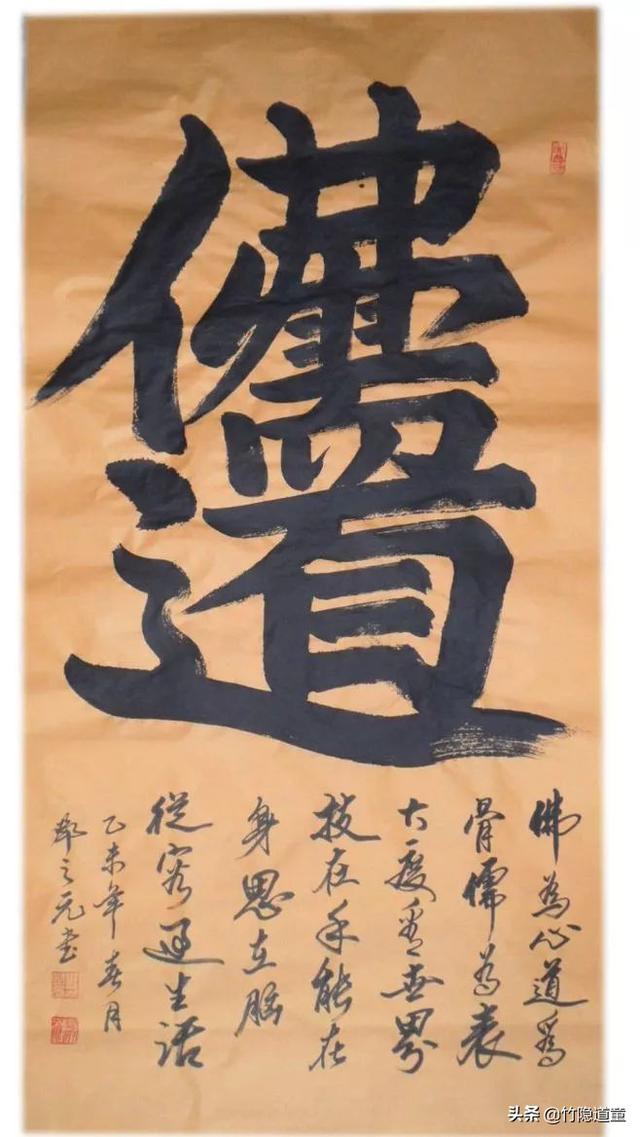 佛為心道爲
骨儒為表
大度看世界
技在手能在
身思在脑
從容過生活
乙未年春月
之元书
头条 @竹隐道童